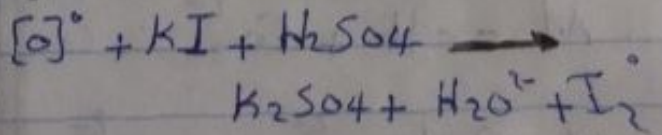 [O]° + KI + H₂SO₄ ⟶
K₂SO₄ + H₂O²⁻ + I₂°